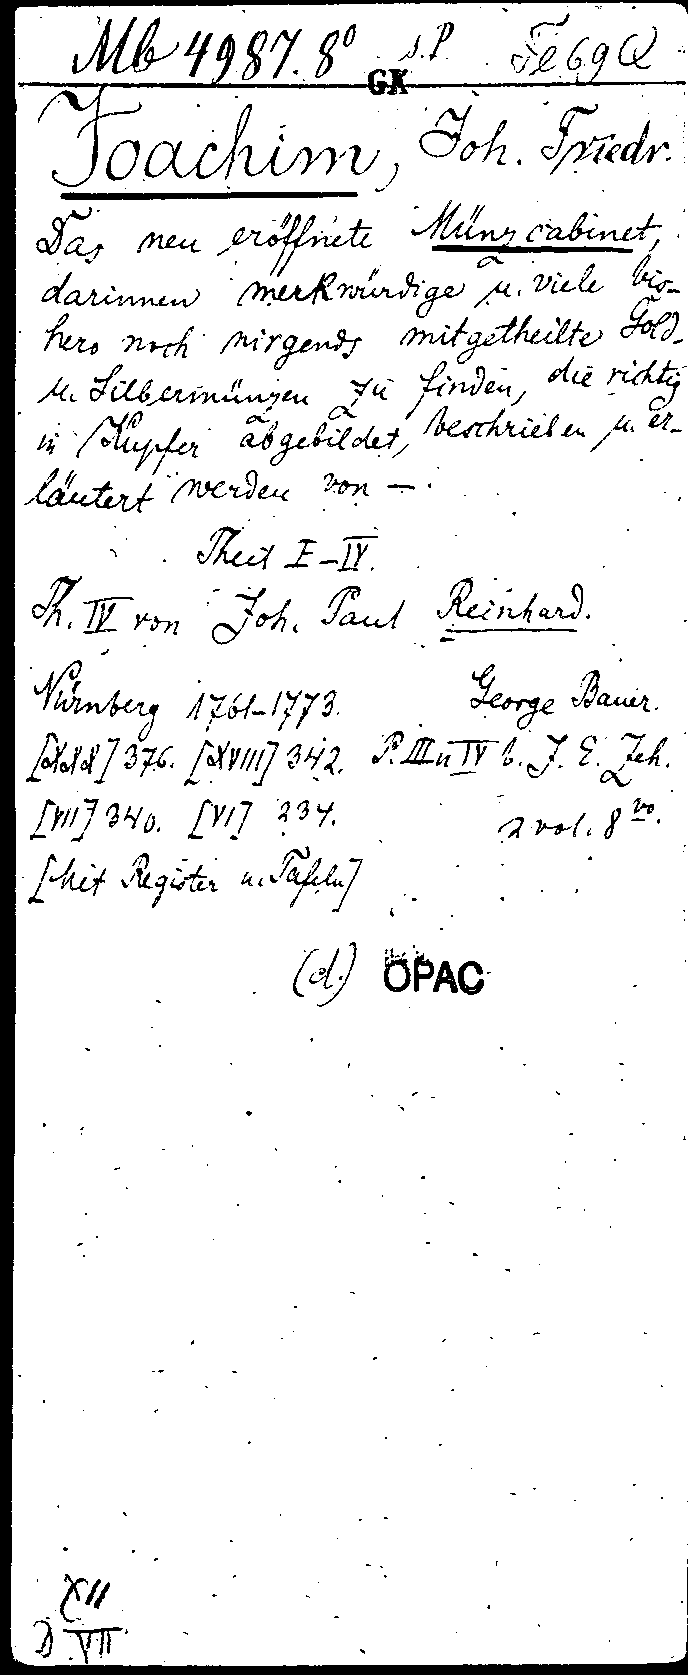 Mb 4987. 8° s.P Fe 69 Q
GK
Joachim, Joh. Friedr.
Das neu eröffnete Münzcabinet,
darinnen merkwürdige u. viele bis-
hero noch nirgends mitgetheilte Gold-
u. Silbermünzen zu finden, die richtig
in Kupfer abgebildet, beschrieben u. er-
läutert werden von —.
Theil I–IV.
Th. IV von Joh. Paul Reinhard.
Nürnberg 1761–1773. George Bauer.
[XXX] 376. [XVIII] 342. P. III u IV b. J. E. Zeh.
[VII] 340. [VI] 234. 2 vol. 8vo.
[Mit Register u. Tafeln]
(d.) OPAC
XII
D VII